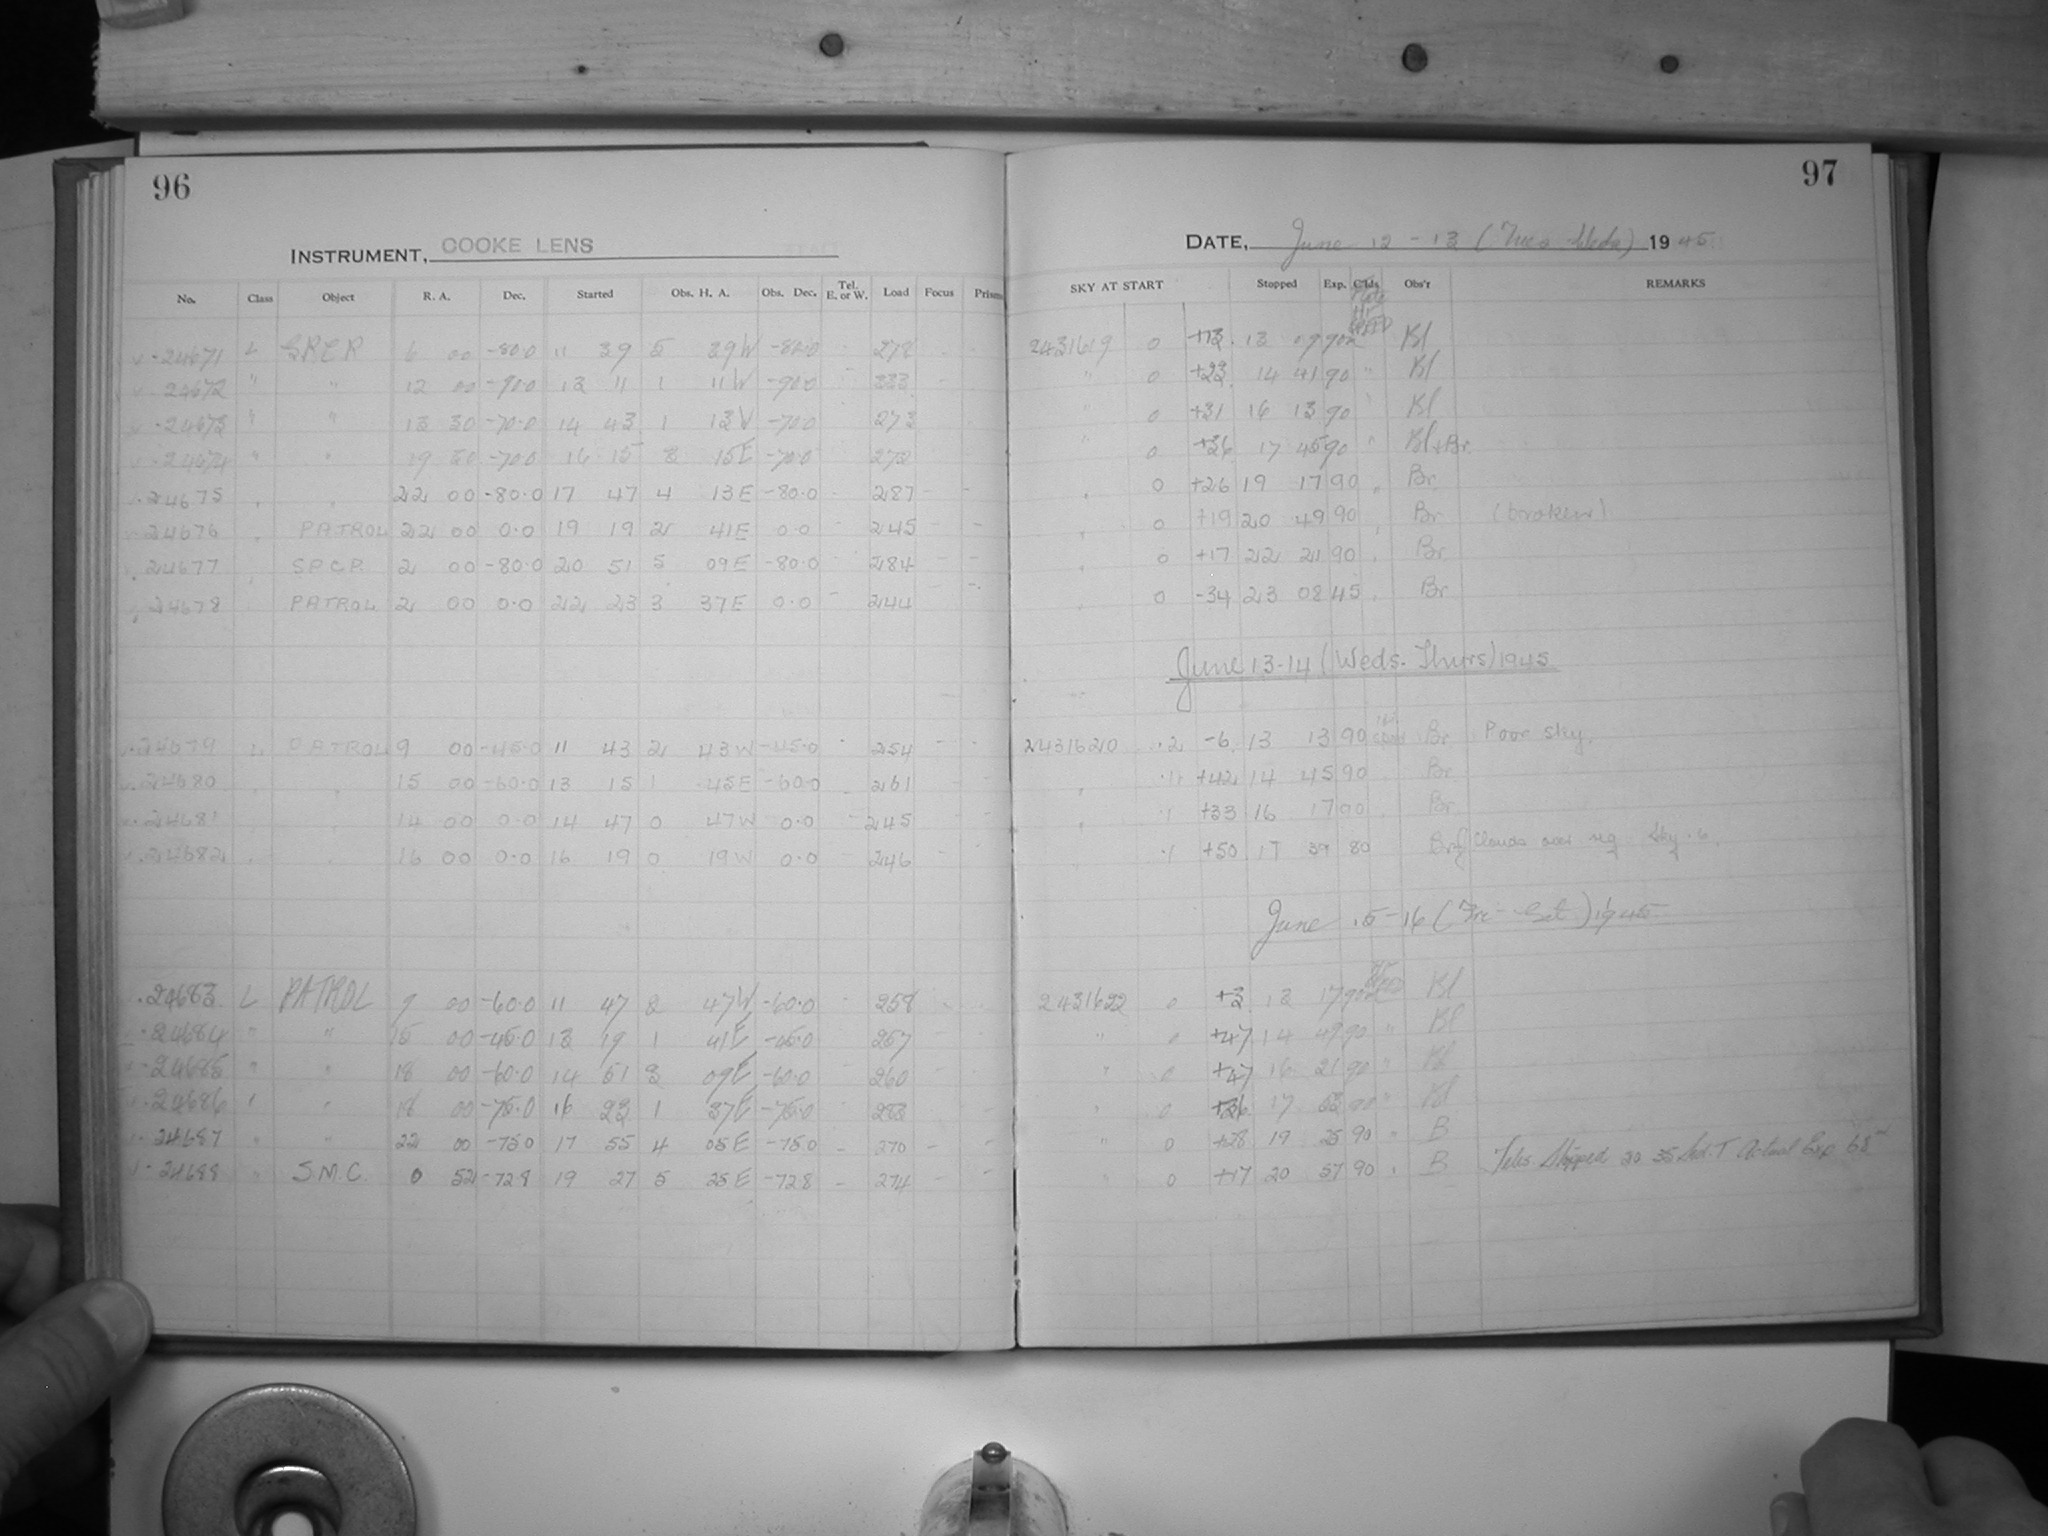 96
INSTRUMENT, COOKE LENS
No. Class Object R. A. Dec. Started Obs. H. A. Obs. Dec. Tel. E. or W. Load Focus Prism
24671 L 6 00 -80.0 11 39 5 39W -80.0 278
24672 " " 12 00 -90.0 13 11 1 11W -90.0
24673 " " 13 30 -70.0 14 43 1 13W -70.0 273
24674 " " 19 30 -70.0 16 15 15E -70.0
24675 " " 22 00 -80.0 17 47 4 13E -80.0 - 287 - -
24676 " PATROL 22 00 0.0 19 19 2 41E 0.0 - 245 - -
24677 " S.P.C.P. 2 00 -80.0 20 51 5 09E -80.0 - 284 - -
24678 PATROL 2 00 0.0 22 23 3 37E 0.0 - 244 - -
24679 L PATROL 9 00 -45.0 11 43 2 43W -45.0 - 254 - -
24680 " " 15 00 -60.0 13 15 1 45E -60.0 - 261 - -
24681 " " 14 00 0.0 14 47 0 47W 0.0 - 245 - -
24682 " " 16 00 0.0 16 19 0 19W 0.0 - 246 - -
24683 L PATROL 9 00 -60.0 11 47 2 47W -60.0 - 258
24684 " " 15 00 -45.0 13 19 1 41E -45.0 257
24685 " " 18 00 -60.0 14 51 09E -60.0 260
24686 " " 18 00 -75.0 16 23 1 37E -75.0
24687 " " 22 00 -75.0 17 55 4 05E -75.0 270 -
24688 " S.M.C. 0 52 -72.8 19 27 5 25E -72.8 - 274 - -
97
DATE, June 12 - 13 (Tues-Weds) 1945
SKY AT START Stopped Exp. Clds. Obs'r REMARKS
2431619 0 +13 13 09 90 Kl
" 0 +23 14 41 90 " Kl
" 0 +31 16 13 90 " Kl
" 0 +26 17 45 90 " Kl+Br.
" 0 +26 19 17 90 " Br
" 0 +19 20 49 90 " Br (broken)
" 0 +17 22 21 90 " Br
" 0 -34 23 08 45 " Br
June 13-14 (Weds. Thurs) 1945
2431620 .2 -6 13 13 90 Br Poor sky.
" +42 14 45 90 Br
" .1 +33 16 17 90 Br
" .1 +50 17 39 80 Br Clouds over reg. Sky .6.
June 15-16 (Fri-Sat) 1945
2431622 0 +3 13 17 90 Kl
" 0 +47 14 49 90 " Kl
" 0 +47 16 21 90 " Kl
" 0 +36 17 53 90 " Kl
" 0 +28 19 25 90 " B
" 0 +17 20 57 90 " B Teles. Stopped 20 35 Sid. T Actual Exp 68